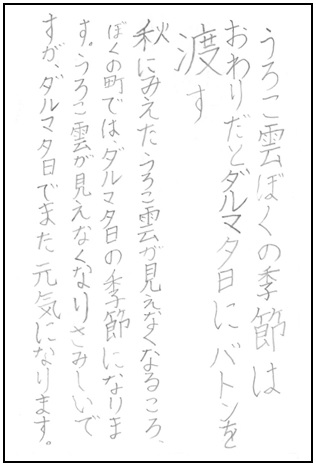 うろこ雲ぼくの季節は
おわりだとダルマ夕日にバトンを
渡す
秋にみえたうろこ雲が見えなくなるころ、
ぼくの町では、ダルマ夕日の季節になりま
す。うろこ雲が見えなくなりさみしいで
すが、ダルマ夕日でまた元気になります。